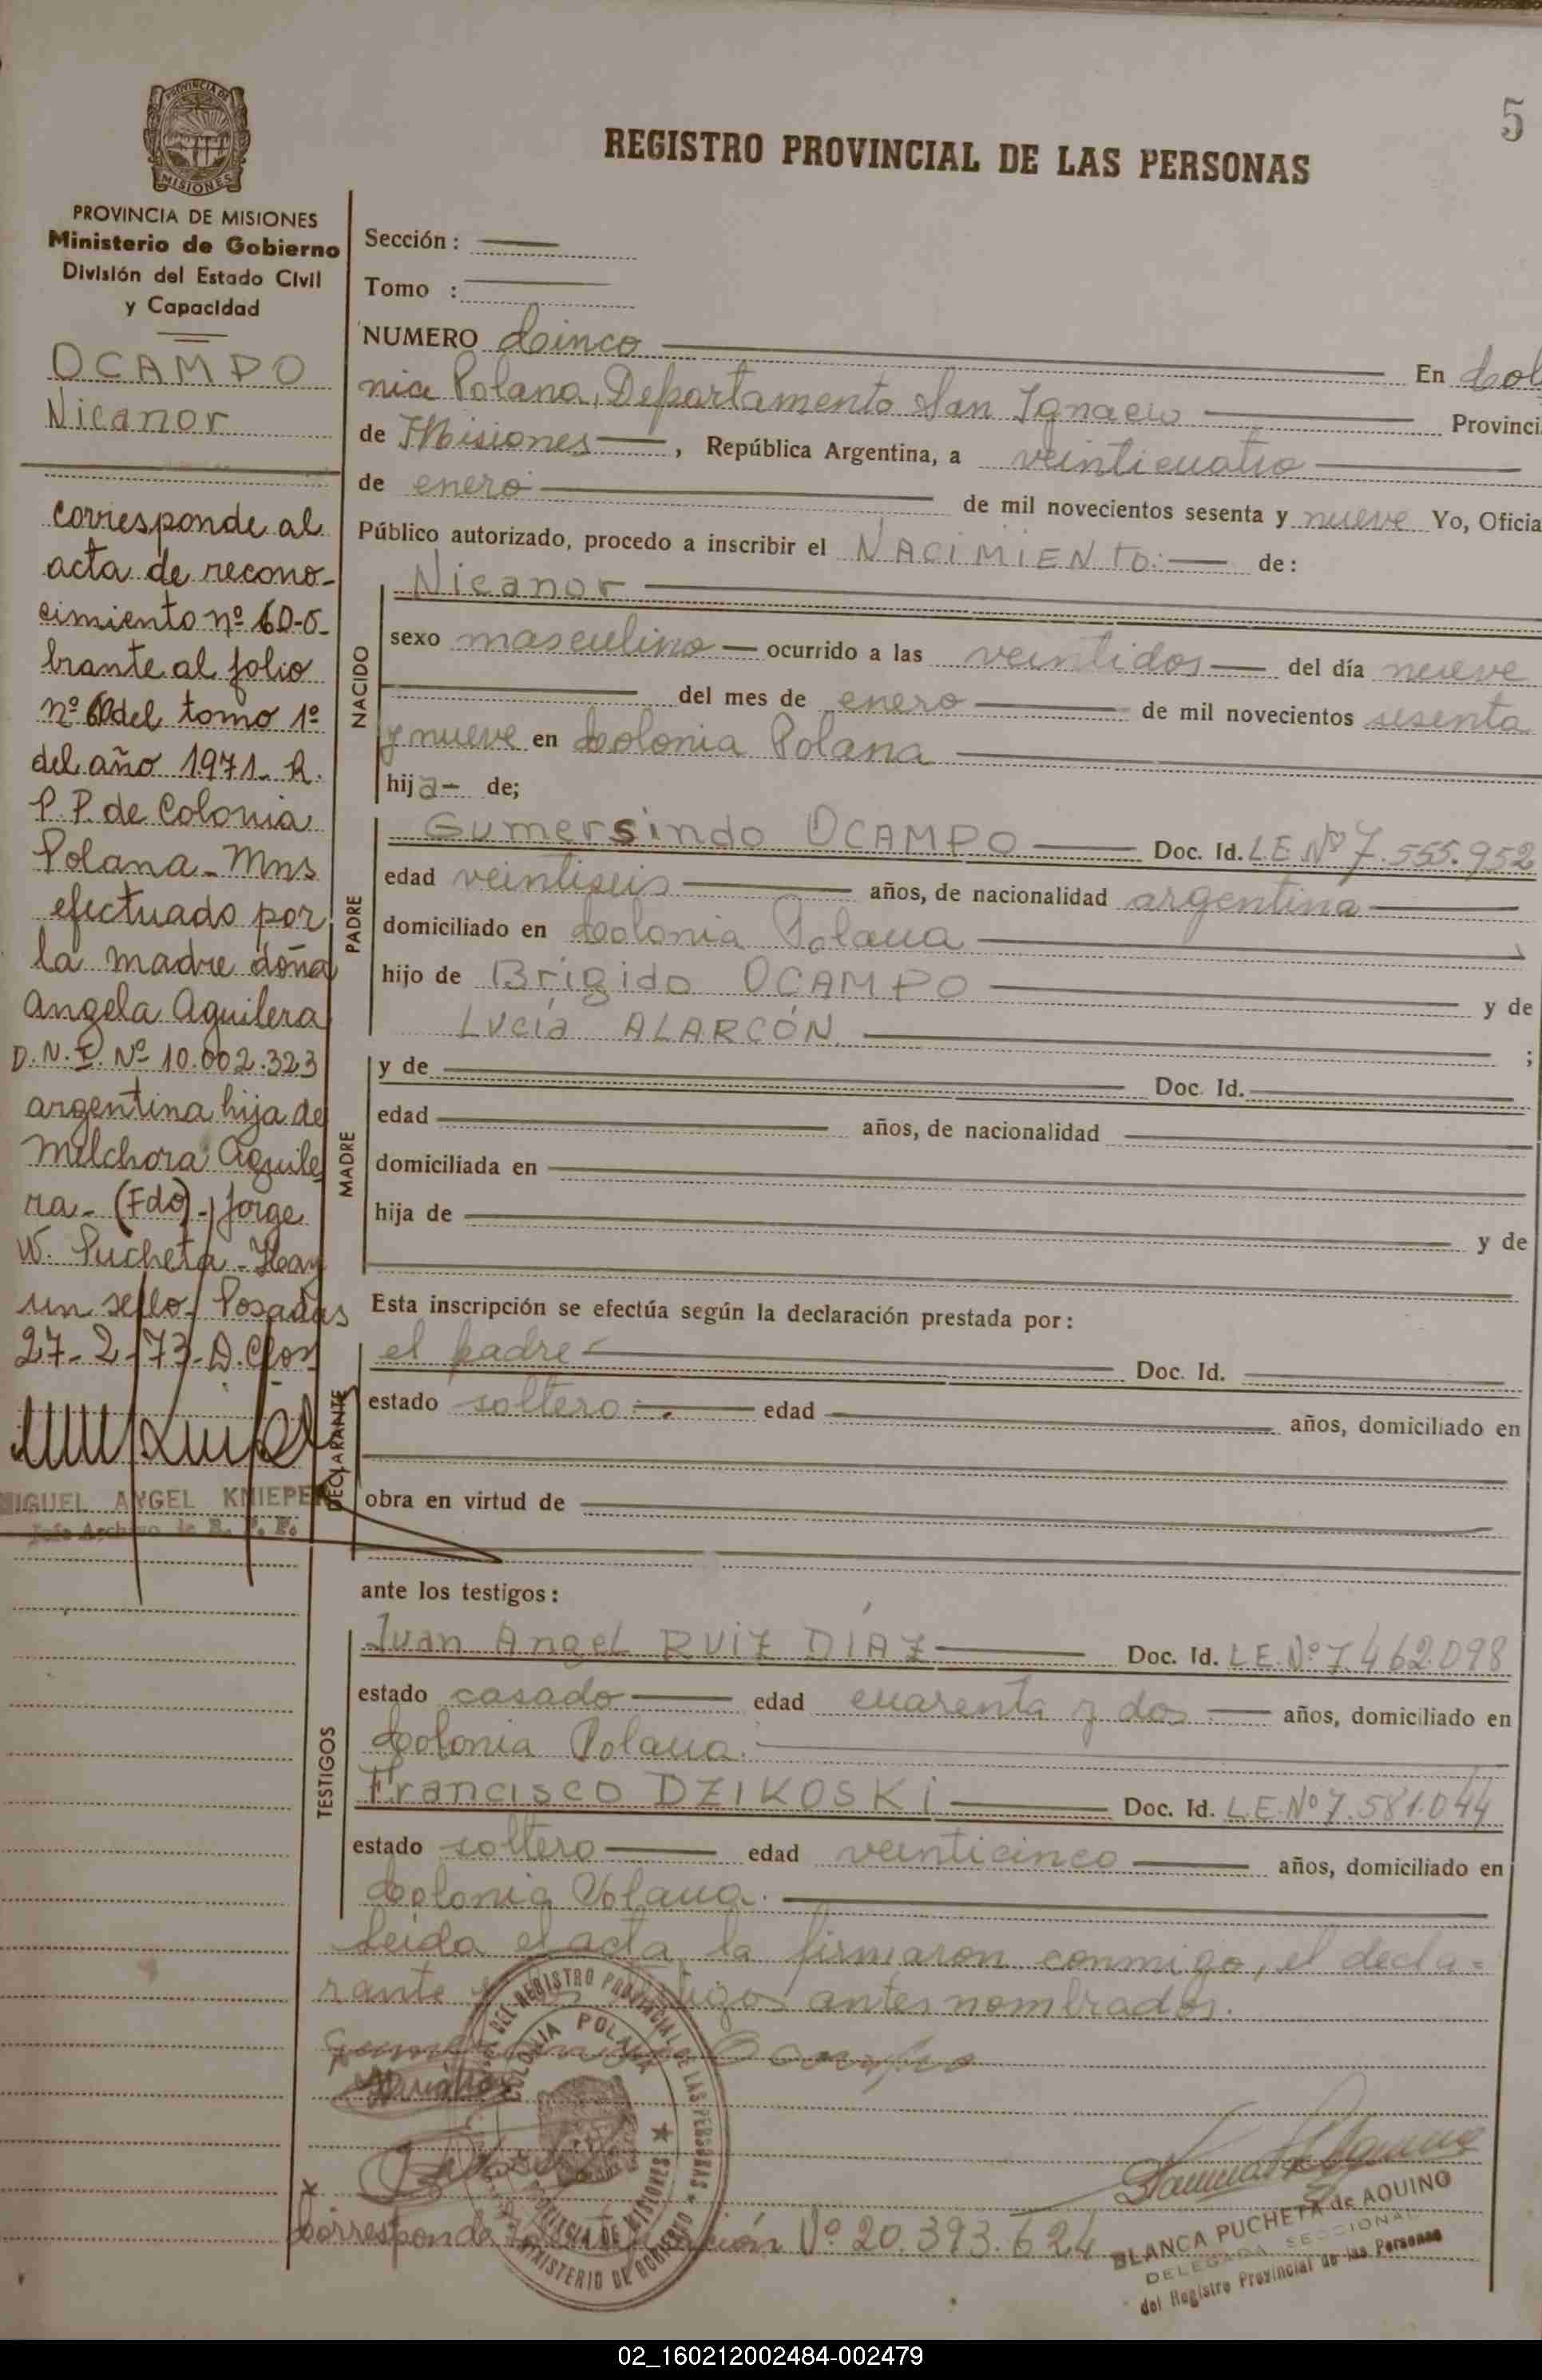 5
REGISTRO PROVINCIAL DE LAS PERSONAS
PROVINCIA DE
MISIONES
PROVINCIA DE MISIONES
Ministerio de Gobierno
División del Estado Civil
y Capacidad
OCAMPO
Nicanor
corresponde al
acta de recono-
cimiento nº 60-o-
brante al folio
nº 60 del tomo 1º
del año 1971- R.
P.P. de Colonia
Polana - Mns
efectuado por
la madre doña
Angela Aguilera
D.N.I. Nº 10.002.323
argentina hija de
Melchora Aguile
ra - (Fdo) - Jorge
W. Pucheta - Hay
un sello - Posadas
27-2-73-
MIGUEL ANGEL KNIEPER
Jefe Archivo de R. P. P.
Sección:
Tomo :
NUMERO Cinco En Col
nia Polana, Departamento San Ignacio Provinci
de Misiones, República Argentina, a veinticuatro
de enero de mil novecientos sesenta y nueve Yo, Oficia
Público autorizado, procedo a inscribir el NACIMIENTO: de:
NACIDO
Nicanor
sexo masculino ocurrido a las veintidos del día nueve
del mes de enero de mil novecientos sesenta
y nueve en Colonia Polana
hija de;
PADRE
Gumersindo OCAMPO Doc. Id. LE Nº 7.555.952
edad veintiseis años, de nacionalidad argentina
domiciliado en Colonia Polana
hijo de Brígido OCAMPO y de
Lucía ALARCÓN ;
MADRE
y de Doc. Id.
edad años, de nacionalidad
domiciliada en
hija de y de
Esta inscripción se efectúa según la declaración prestada por:
DECLARANTE
el padre Doc. Id.
estado soltero edad años, domiciliado en
obra en virtud de
ante los testigos:
TESTIGOS
Juan Angel RUIZ DÍAZ Doc. Id. LE.Nº 7.462.098
estado casado edad cuarenta y dos años, domiciliado en
Colonia Polana.
Francisco DZIKOSKi Doc. Id. L.E.Nº 7.581.044
estado soltero edad veinticinco años, domiciliado en
Colonia Polana.
Leida el acta la firmaron conmigo, el decla-
rante testigos antes nombrados.
Gumersindo Ocampo
DEL REGISTRO PROVINCIAL DE LAS PERSONAS
COLONIA POLANA
MISIONES
MINISTERIO DE GOBIERNO
Corresponde Nº 20.393.624
BLANCA PUCHETA de AQUINO
DELEGADA SECCIONAL
del Registro Provincial de las Personas
02_160212002484-002479